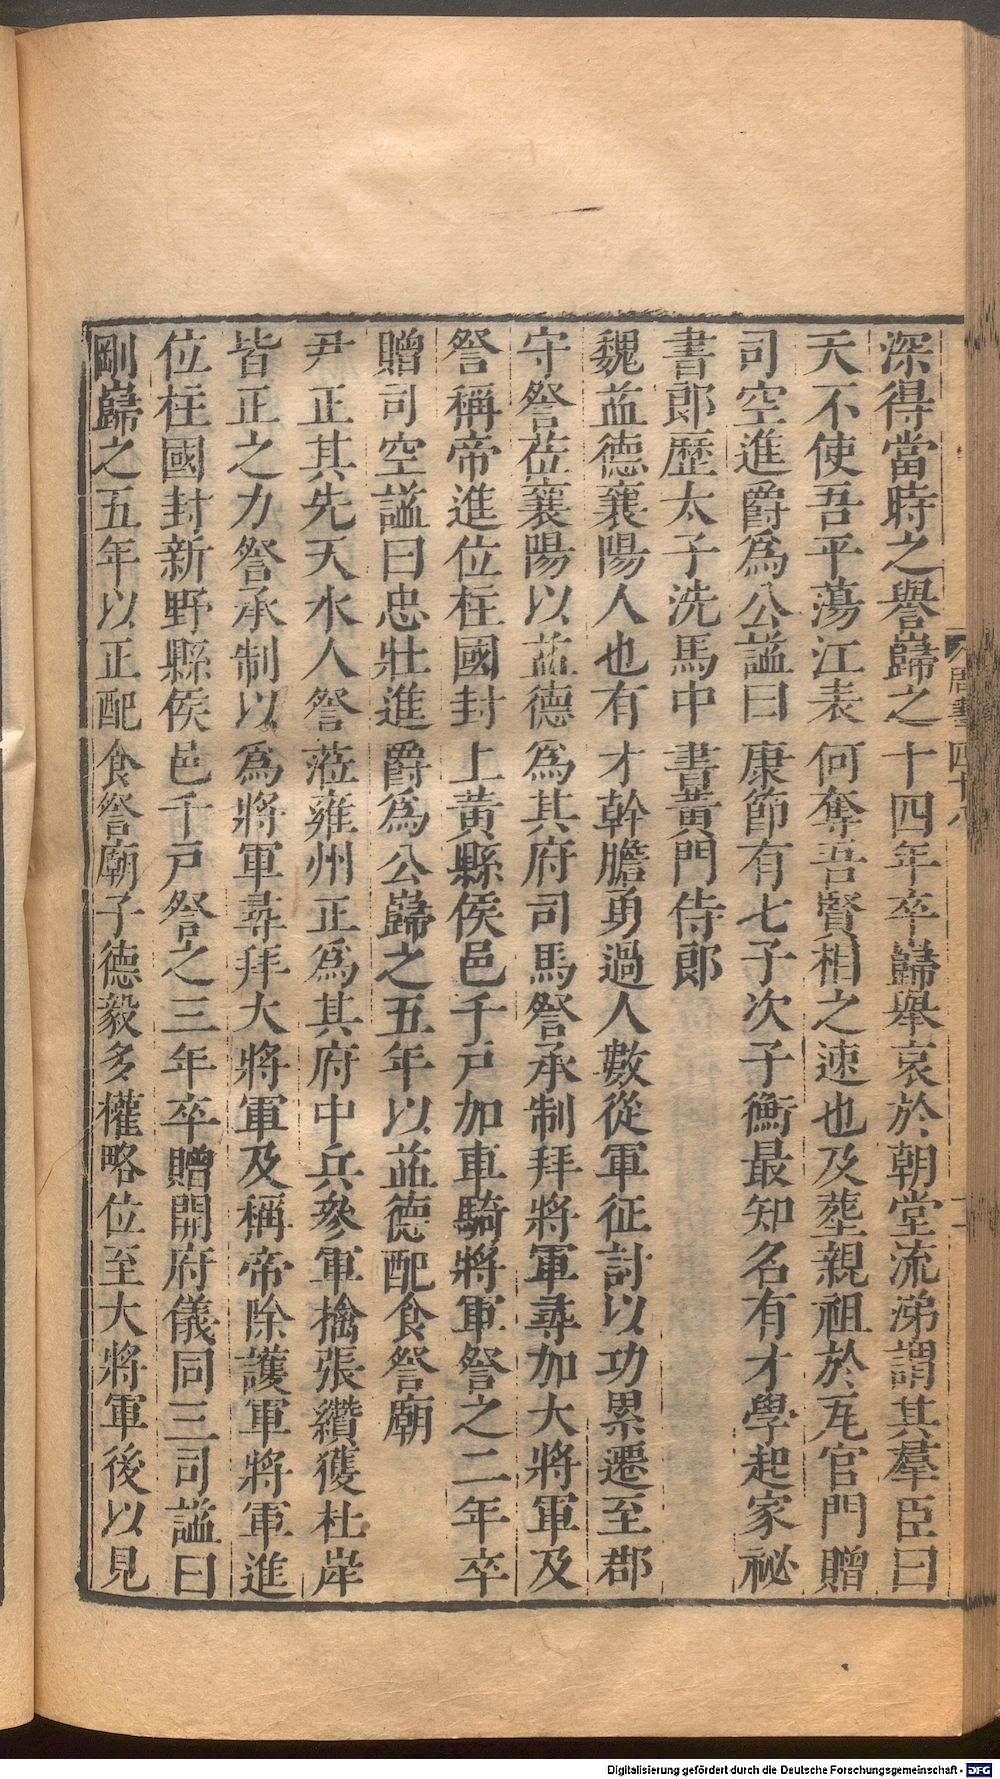 深得當時之譽巋之十四年卒巋舉哀於朝堂流涕謂其羣臣曰
天不使吾平蕩江表何奪吾賢相之速也及葬親祖於瓦官門贈
司空進爵爲公謚曰康節有七子次子衡最知名有才學起家祕
書郎歷太子洗馬中書黃門侍郎
魏益德襄陽人也有才幹膽勇過人數從軍征討以功累遷至郡
守詧莅襄陽以益德爲其府司馬詧承制拜將軍尋加大將軍及
詧稱帝進位柱國封上黃縣侯邑千戸加車騎將軍詧之二年卒
贈司空謚曰忠壯進爵爲公巋之五年以益德配食詧廟
尹正其先天水人詧莅雍州正爲其府中兵參軍擒張纘獲杜岸
皆正之力詧承制以爲將軍尋拜大將軍及稱帝除護軍將軍進
位柱國封新野縣侯邑千戸詧之三年卒贈開府儀同三司謚曰
剛巋之五年以正配食詧廟子德毅多權略位至大將軍後以見
周書四十八
Digitalisierung gefördert durch die Deutsche Forschungsgemeinschaft - DFG